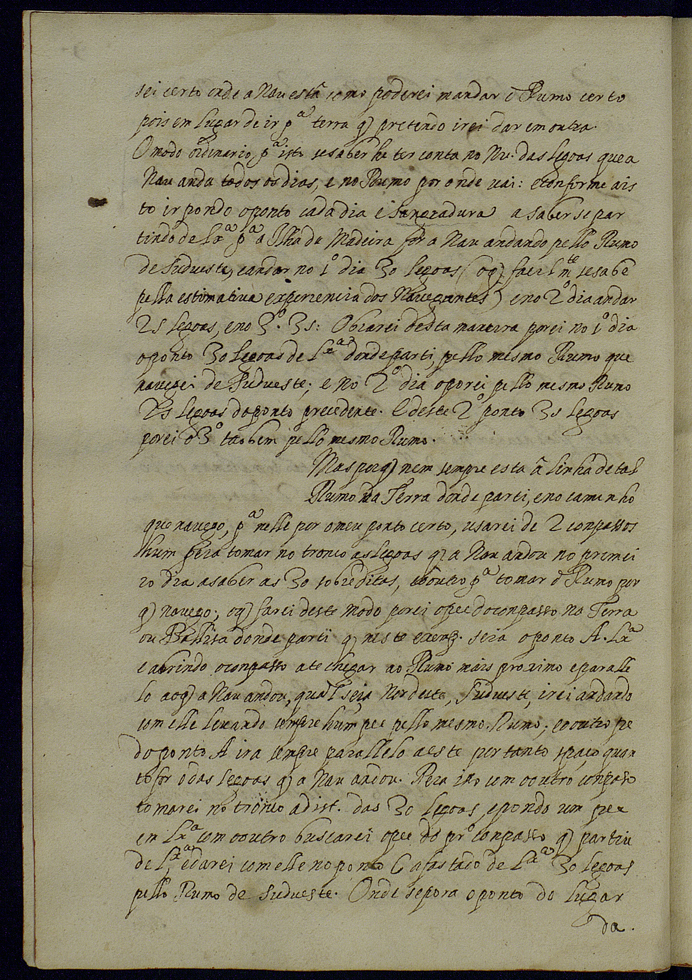 sei certo onde a Nau está como poderei mandar o Rumo certo
pois em lugar de ir pª terra q̃ pretendo irei dar em outra.
O modo ordinario pª isto se saber he ter conta no Nu: das legoas que a
Nau anda todos os dias, e no Rumo por onde vai: e conforme a is
to ir pondo o ponto cada dia e Sangradura a saber se par
tindo de Lxª pª a Ilha de Madeira for a Nau andando pello Rumo
de Suduest, e andar no 1º dia 30 legoas (o q̃ facilmte se sabe
pella estimativa experiencia dos Navegantes) e no 2º dia andar
25 legoas, e no 3º. 35: Obrarei desta maneira porei no 1º dia
o ponto 30 legoas de Lxª donde parti pello mesmo Rumo que
naveguei de Sudueste; e no 2º dia o porei pello mesmo Rumo
25 legoas do ponto precedente. E deste 2º ponto 35 legoas
porei o 3º tãobem pello mesmo Rumo.
Mas porq̃ nem sempre esta a linha de tal
Rumo na Terra donde parti, e no caminho
que navego, pª nelle por o meu ponto certo, usarei de 2 conpassos
hum pera tomar no tronco as legoas q̃ a Nau andou no premei
ro dia a saber as 30 sobreditas, e outro pª tomar o Rumo por
q̃ navego; o q̃ farei deste modo porei o pee do conpasso na Terra
ou Balisa donde parti q̃ neste exenp. seia o ponto A. Lxª
e abrindo o conpasso ate chegar ao Rumo mais proximo e paralle
lo ao q̃ a Nau andou, qual seia Nordeste, Sudueste, irei andando
com elle levando sempre hum pee pello mesmo Rumo, e o outro pe
do ponto A ira sempre parallelo a este por tanto spaço quan
to for o das legoas q̃ a Nau andou. Pera isto com o outro conpasso
tomarei no tronco a dist. das 30 legoas, e pondo um pee
em Lxª com o outro buscarei o pee do prº conpasso q̃ partiu
de Lxª e darei com elle no ponto C afastado de Lxª 30 legoas
pello Rumo de Sudueste. Onde se pora o ponto do lugar
da.